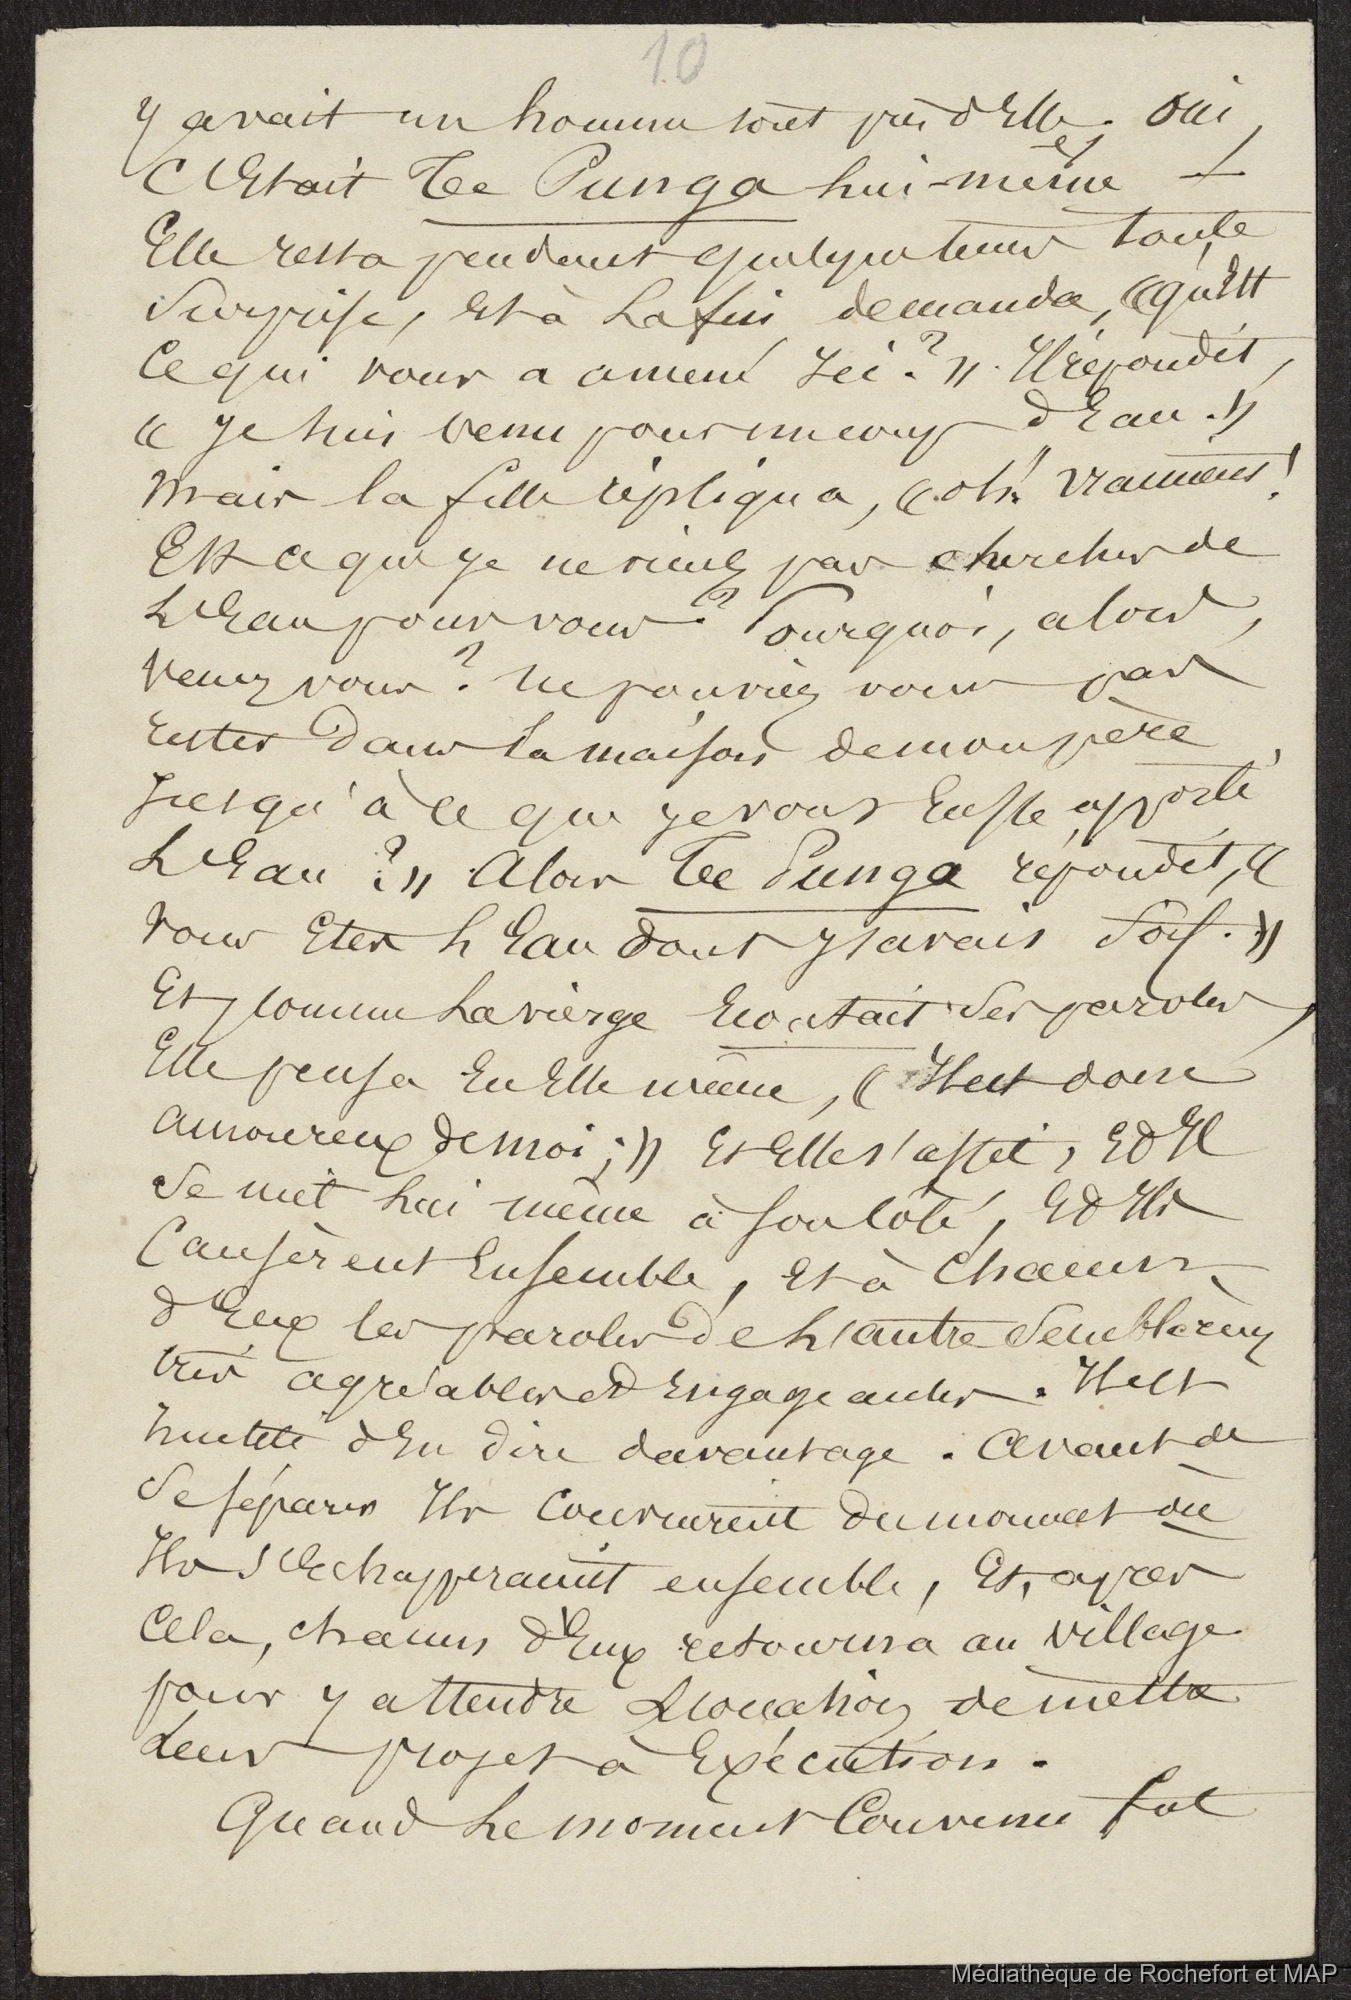 10
y avait un homme tout près d'Elle. Oui,
C'Etait Te Punga lui-même +
Elle resta pendant quelque tems toute
Surprise, Et à La fin demanda, « qu'Est
Ce qui vous a amené Ici ? ». Il répondit,
« Je suis venu pour un coup d'Eau. »
Mais la fille répliqua, « oh! vraiment!
Est ce que je ne viens pas chercher de
L'Eau pour vous ? Pourquoi, alors,
venez vous ? Ne pouviez vous pas
rester dans la maison de mon père
Jusqu'à ce que je vous Eusse apporté
L'Eau ? » Alors Te Punga répondit, «
vous Etes l'Eau dont j'avais Soif. »
Et, comme La vièrge Ecoutait Ses paroles,
Elle pensa En Elle même, « Il est donc
amoureux de moi ; » Et Elle s'assit, Et Il
Se mit lui même à son côté, Et Ils
Causèrent Ensemble, Et à Chacun
d'Eux les paroles de l'autre Semblèrent
très agréables et Engageantes. Il est
inutile d'En dire davantage. Avant de
Se séparer Ils convinrent du moment où
Ils s'Echapperaient ensemble, Et, après
Cela, chacun d'Eux retourna au village
pour y attendre L'occasion de mettre
Leur projet à Exécution.
Quand Le moment Convenu fut
Médiathèque de Rochefort et MAP